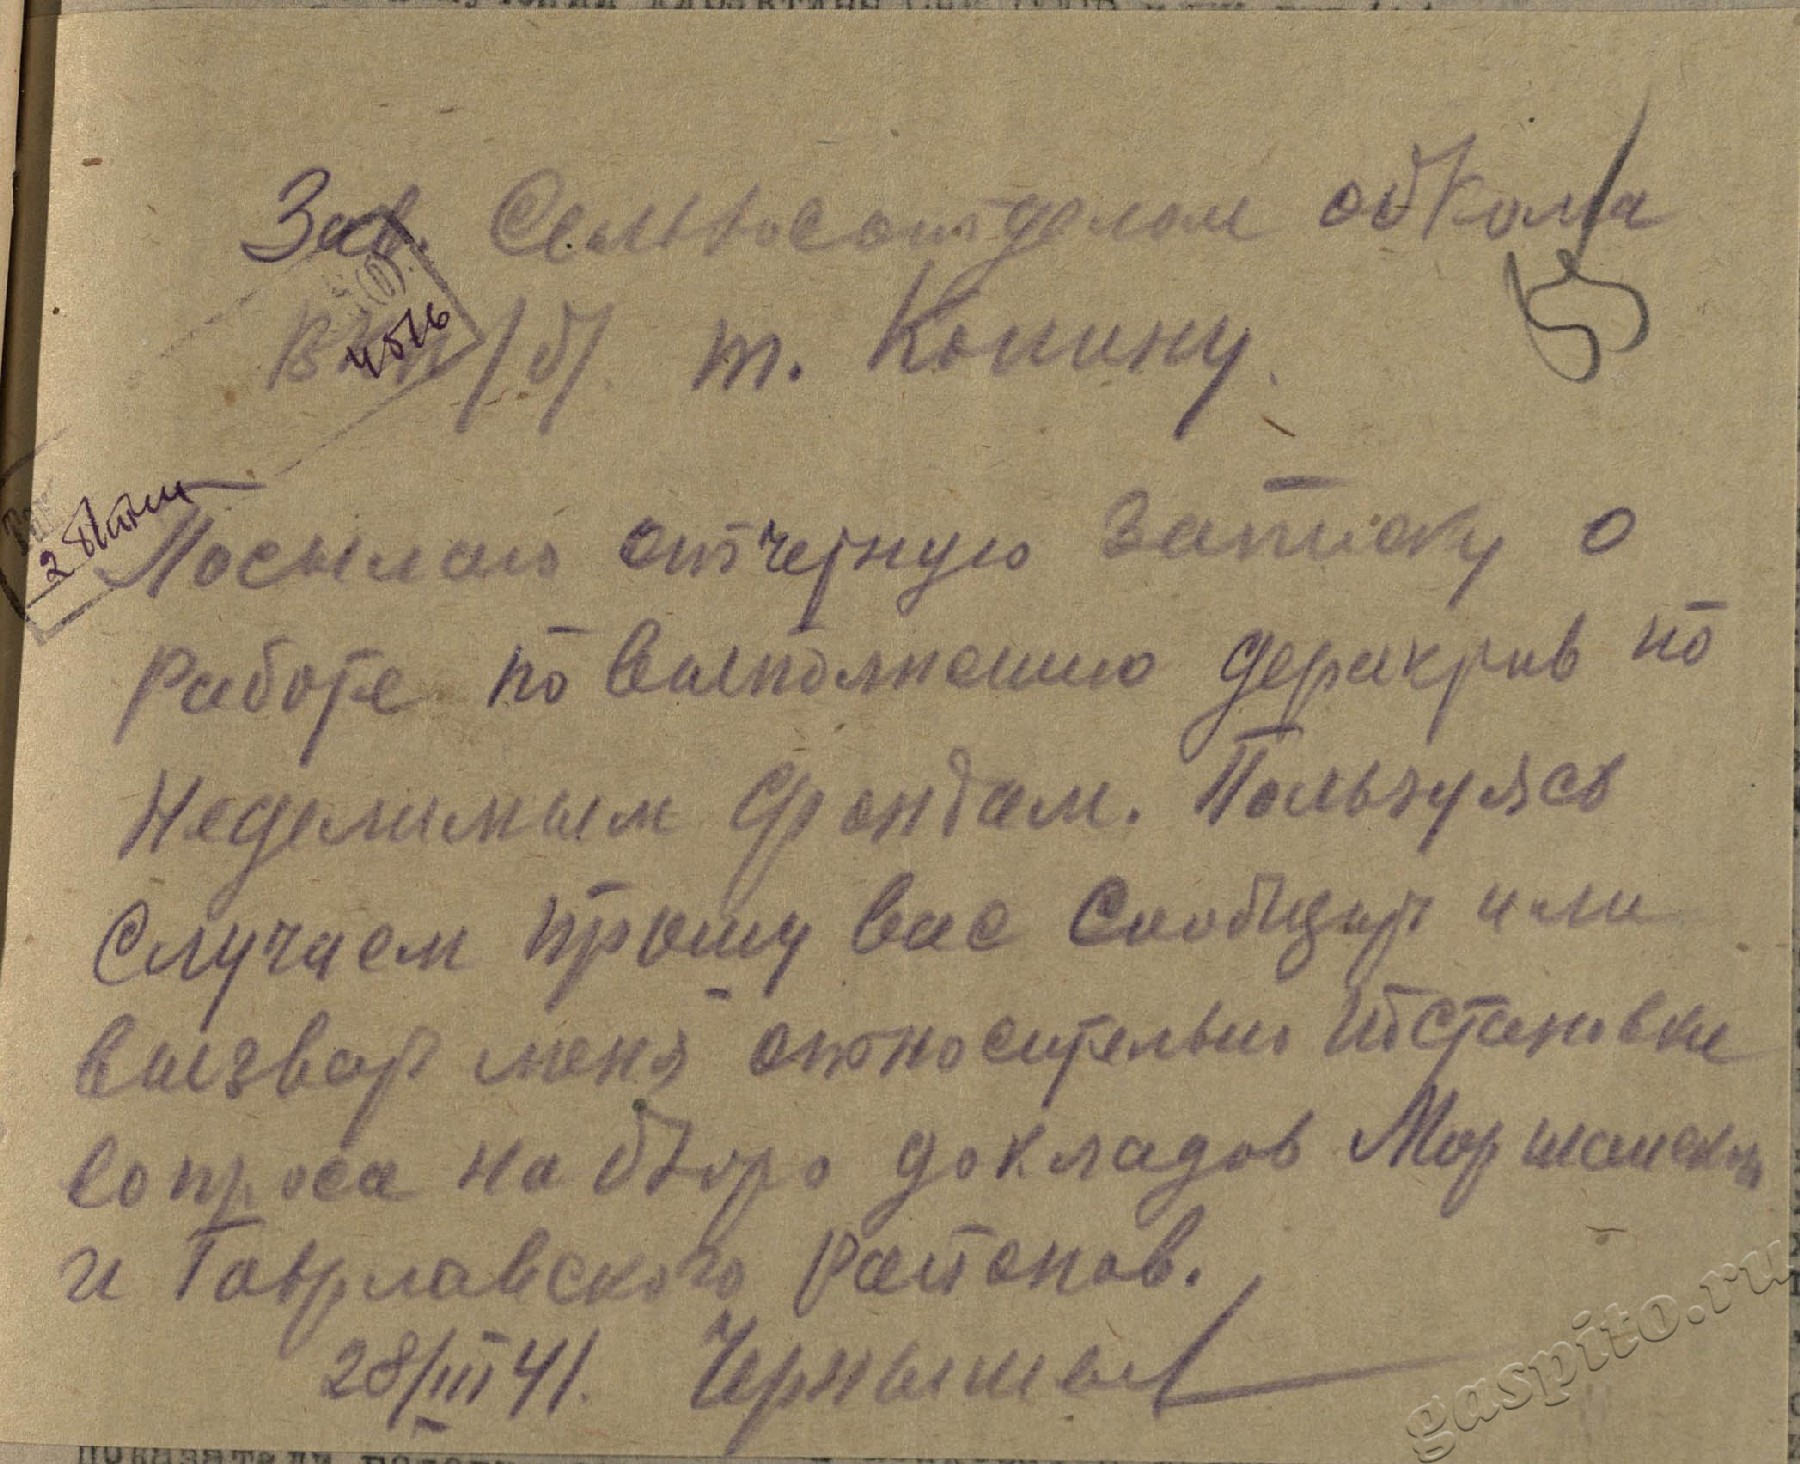 Зав. Сельхозотделом обкома
ВКП/б/. т. Конину.
4516
Посылаю отчетную записку о
работе по выполнению директив по
неделимым фондам. Пользуясь
случаем прошу вас сообщить или
вызвать меня относительно постановки
вопроса на бюро докладов Моршанского
и Гавриловского районов.
28/III 41. Чернышев
gaspito.ru